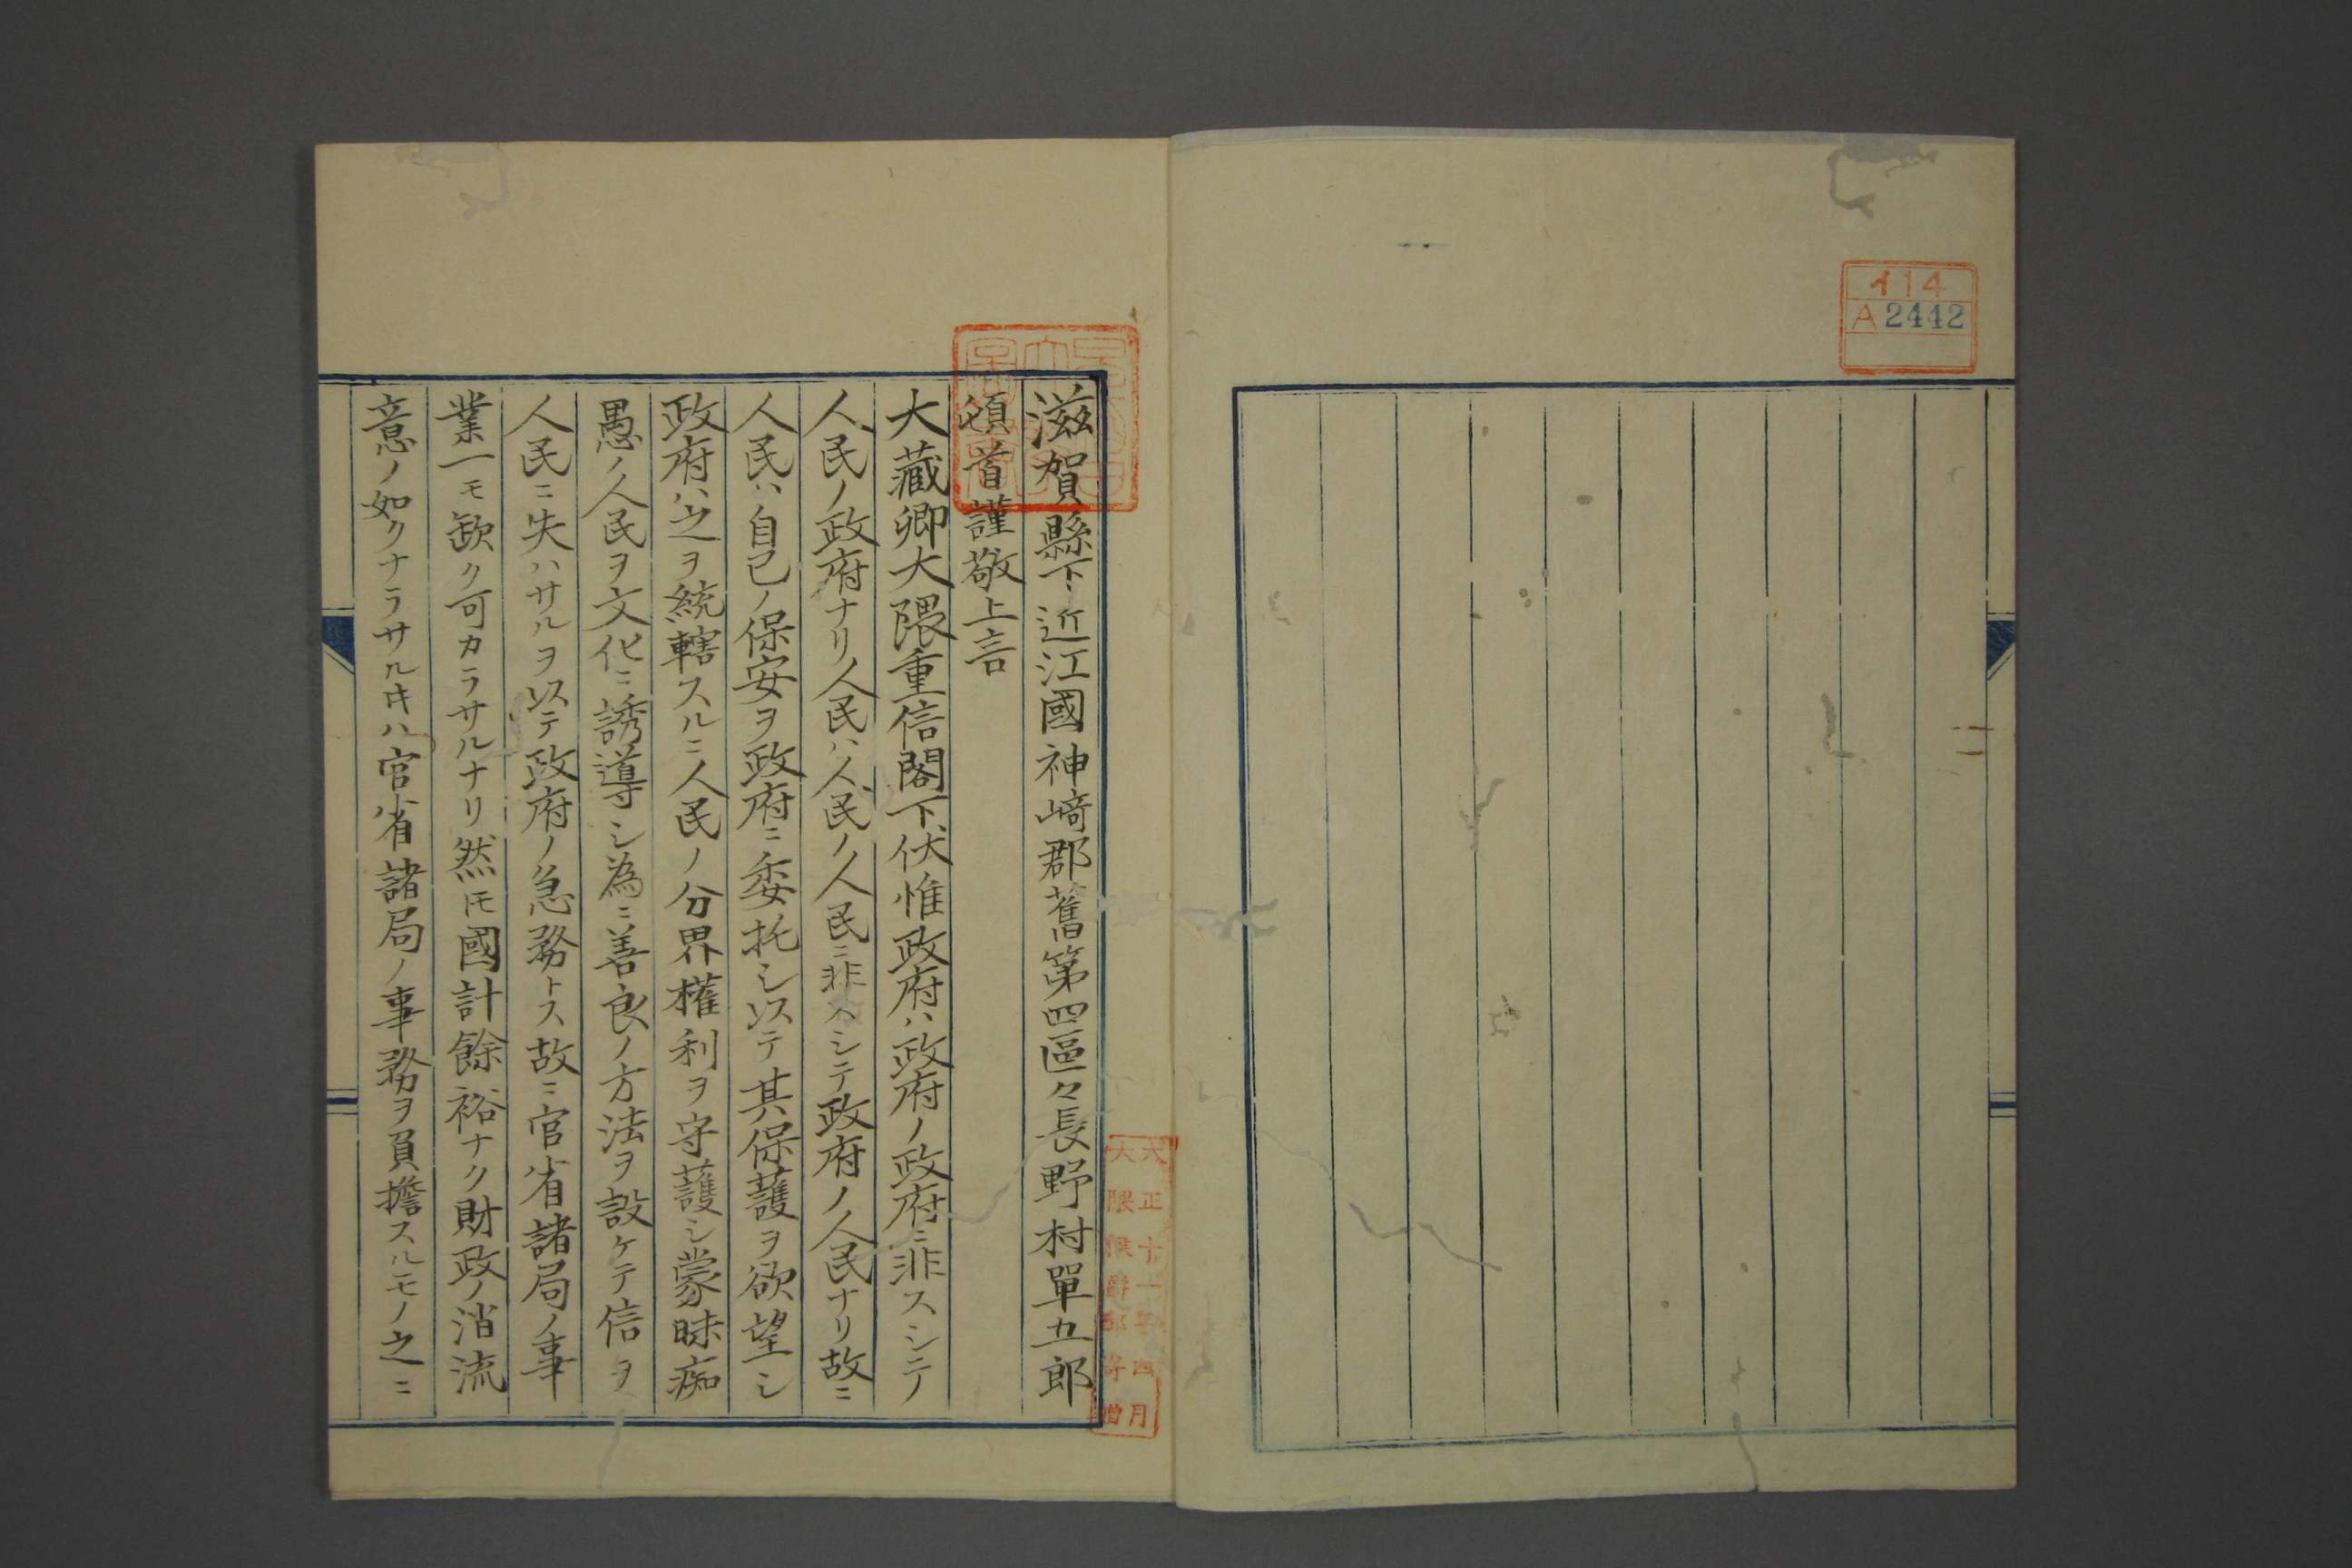 イ14
A2442
滋賀縣下近江國神﨑郡舊第四區々長野村單五郎
頓首謹敬上言
大藏卿大隈重信閣下伏惟政府ハ政府ノ政府ニ非スシテ
人民ノ政府ナリ人民ハ人民ノ人民ニ非スシテ政府ノ人民ナリ故ニ
人民ハ自己ノ保安ヲ政府ニ委托シ以テ其保護ヲ欲望シ
政府ハ之ヲ統轄スルニ人民ノ分界權利ヲ守護シ蒙昧痴
愚ノ人民ヲ文化ニ誘導シ為ニ善良ノ方法ヲ設ケテ信ヲ
人民ニ失ハサルヲ以テ政府ノ急務トス故ニ官省諸局ノ事
業一モ欽ク可カラサルナリ然ㇳモ國計餘裕ナク財政ノ消流
意ノ如クナラサルキハ官省諸局ノ事務ヲ負擔スルモノ之ニ
大正十一年四月
大隈侯爵邸寄贈